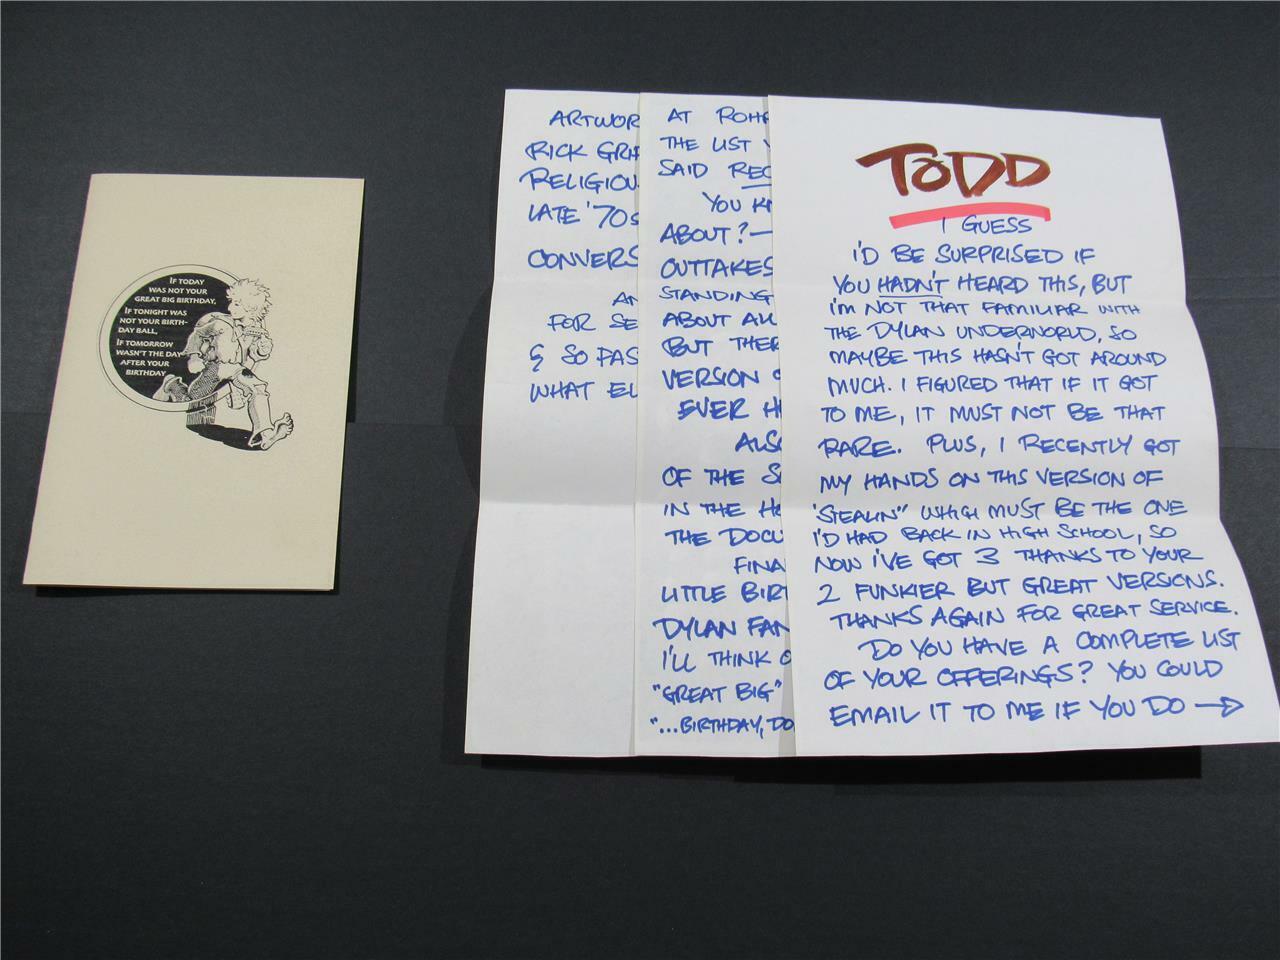 IF TODAY
WAS NOT YOUR
GREAT BIG BIRTHDAY,
IF TONIGHT WAS
NOT YOUR BIRTH-
DAY BALL,
IF TOMORROW
WASN'T THE DAY
AFTER YOUR
BIRTHDAY
ARTWOR
RICK GRIF
RELIGIOU
LATE '70s
CONVERS
AN
FOR SE
& SO FAS
WHAT EL
AT ROHR
THE LIST
SAID REC
YOU KN
ABOUT?—
OUTTAKES
STANDING
ABOUT ALL
BUT THER
VERSION
EVER H
ALSO
OF THE S
IN THE HO
THE DOCU
FINA
LITTLE BIRT
DYLAN FAN
I'LL THINK O
"GREAT BIG"
"...BIRTHDAY, DO
TODD
I GUESS
I'D BE SURPRISED IF
YOU HADN'T HEARD THIS, BUT
I'M NOT THAT FAMILIAR WITH
THE DYLAN UNDERWORLD, SO
MAYBE THIS HASN'T GOT AROUND
MUCH. I FIGURED THAT IF IT GOT
TO ME, IT MUST NOT BE THAT
RARE. PLUS, I RECENTLY GOT
MY HANDS ON THIS VERSION OF
'STEALIN" WHICH MUST BE THE ONE
I'D HAD BACK IN HIGH SCHOOL, SO
NOW I'VE GOT 3 THANKS TO YOUR
2 FUNKIER BUT GREAT VERSIONS.
THANKS AGAIN FOR GREAT SERVICE.
DO YOU HAVE A COMPLETE LIST
OF YOUR OFFERINGS? YOU COULD
EMAIL IT TO ME IF YOU DO →